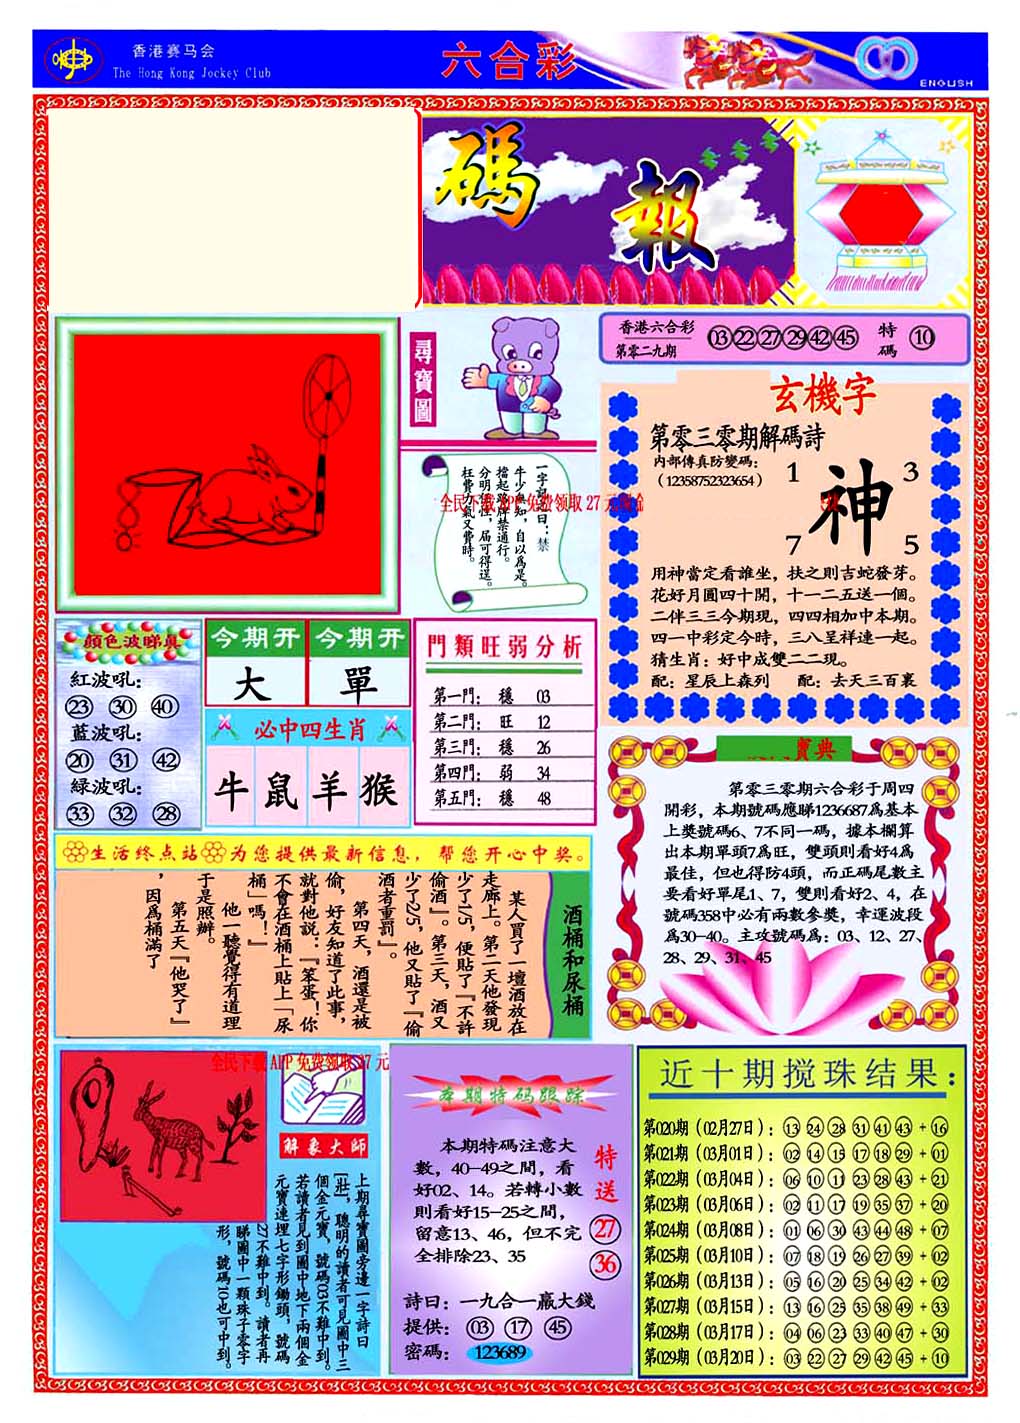 香港赛马会
The Hong Kong Jockey Club
六合彩
ENGLISH
碼報
尋寶圖
香港六合彩
第零二九期
03 22 27 29 42 45
特碼 10
玄機字
第零三零期解碼詩
内部傳真防變碼:
(12358752323654)
1 3
神
7 5
用神當定看誰坐，扶之則吉蛇發芽。
花好月圓四十開，十一二五送一個。
二伴三三今期現，四四相加中本期。
四一中彩定今時，三八呈祥連一起。
猜生肖：好中成雙二二現。
配：星辰上森列 配：去天三百裏
一字記之曰：禁
牛少無知，自以爲是。
擋起路牌禁通行。
分明個性，届可得逞。
枉費力氣又費時。
全民下载APP免费领取27元现金
顔色波睇真
紅波吼：
23 30 40
藍波吼：
20 31 42
緑波吼：
33 32 28
今期开 今期开
大 單
必中四生肖
牛 鼠 羊 猴
門類旺弱分析
第一門： 穩 03
第二門： 旺 12
第三門： 穩 26
第四門： 弱 34
第五門： 穩 48
寶典
第零三零期六合彩于周四
開彩，本期號碼應睇1236687爲基本
上獎號碼6、7不同一碼，據本欄算
出本期單頭7爲旺，雙頭則看好4爲
最佳，但也得防4頭，而正碼尾數主
要看好單尾1、7，雙則看好2、4，在
號碼358中必有兩數參獎，幸運波段
爲30—40。主攻號碼爲：03、12、27、
28、29、31、45
生活终点站 为您提供最新信息，帮您开心中奖。
酒桶和尿桶
某人買了一壇酒放在
走廊上。第二天他發現
少了1/5，便貼了『不許
偷酒』。第三天，酒又
少了2/5，他又貼了『偷
酒者重罰』。
第四天，酒還是被
偷，好友知道了此事，
就對他說：『笨蛋！你
不會在酒桶上貼上「尿
桶」嗎！』
他一聽覺得有道理
于是照辦。
第五天『他哭了』
，因爲桶滿了
全民下载APP免费领取27元
解象大師
上期尋寶圖旁邊一字詩曰
[壯]，聰明的讀者可見圖中三
個金元寶，號碼03不難中到。
若讀者見到圖中地下兩個金
元寶連埋七字形鋤頭，號碼
27不難中到。讀者再
睇圖中一顆珠子零字
形，號碼10也可中到。
本期特码跟踪
本期特碼注意大
數，40—49之間，看
好02、14。若轉小數
則看好15—25之間，
留意13、46，但不完
全排除23、35
特送
27
36
詩曰：一九合一贏大錢
提供： 03 17 45
密碼： 123689
近十期搅珠结果：
第020期（02月27日）： 13 24 28 31 41 43 + 16
第021期（03月01日）： 02 14 15 17 18 29 + 01
第022期（03月04日）： 06 10 11 23 28 43 + 21
第023期（03月06日）： 02 11 17 19 35 37 + 20
第024期（03月08日）： 01 06 30 43 44 48 + 07
第025期（03月10日）： 07 18 19 26 27 39 + 02
第026期（03月13日）： 05 16 20 25 34 42 + 02
第027期（03月15日）： 13 16 25 35 38 49 + 33
第028期（03月17日）： 04 06 23 33 40 47 + 30
第029期（03月20日）： 03 22 27 29 42 45 + 10